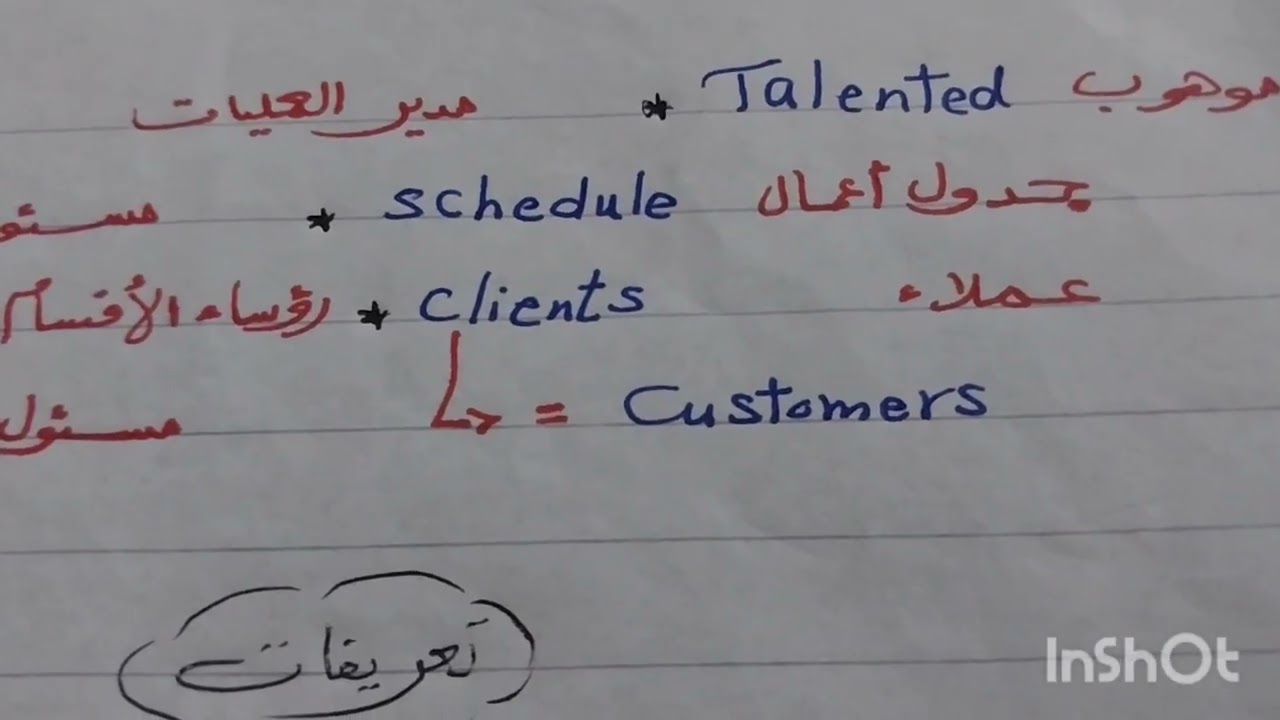 * Talented موهوب
مدير العليات
* schedule جدول أعمال
* clients عملاء
رؤساء الأقسام
= Customers
مسئول
تعريفات
InShOt